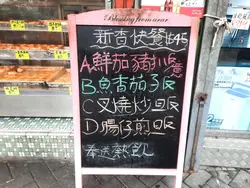 Blessing from near
新杏快餐$45
A鮮茄豬扒飯
B魚香茄子飯
C叉燒炒飯
D腸仔煎飯
奉送熱飲